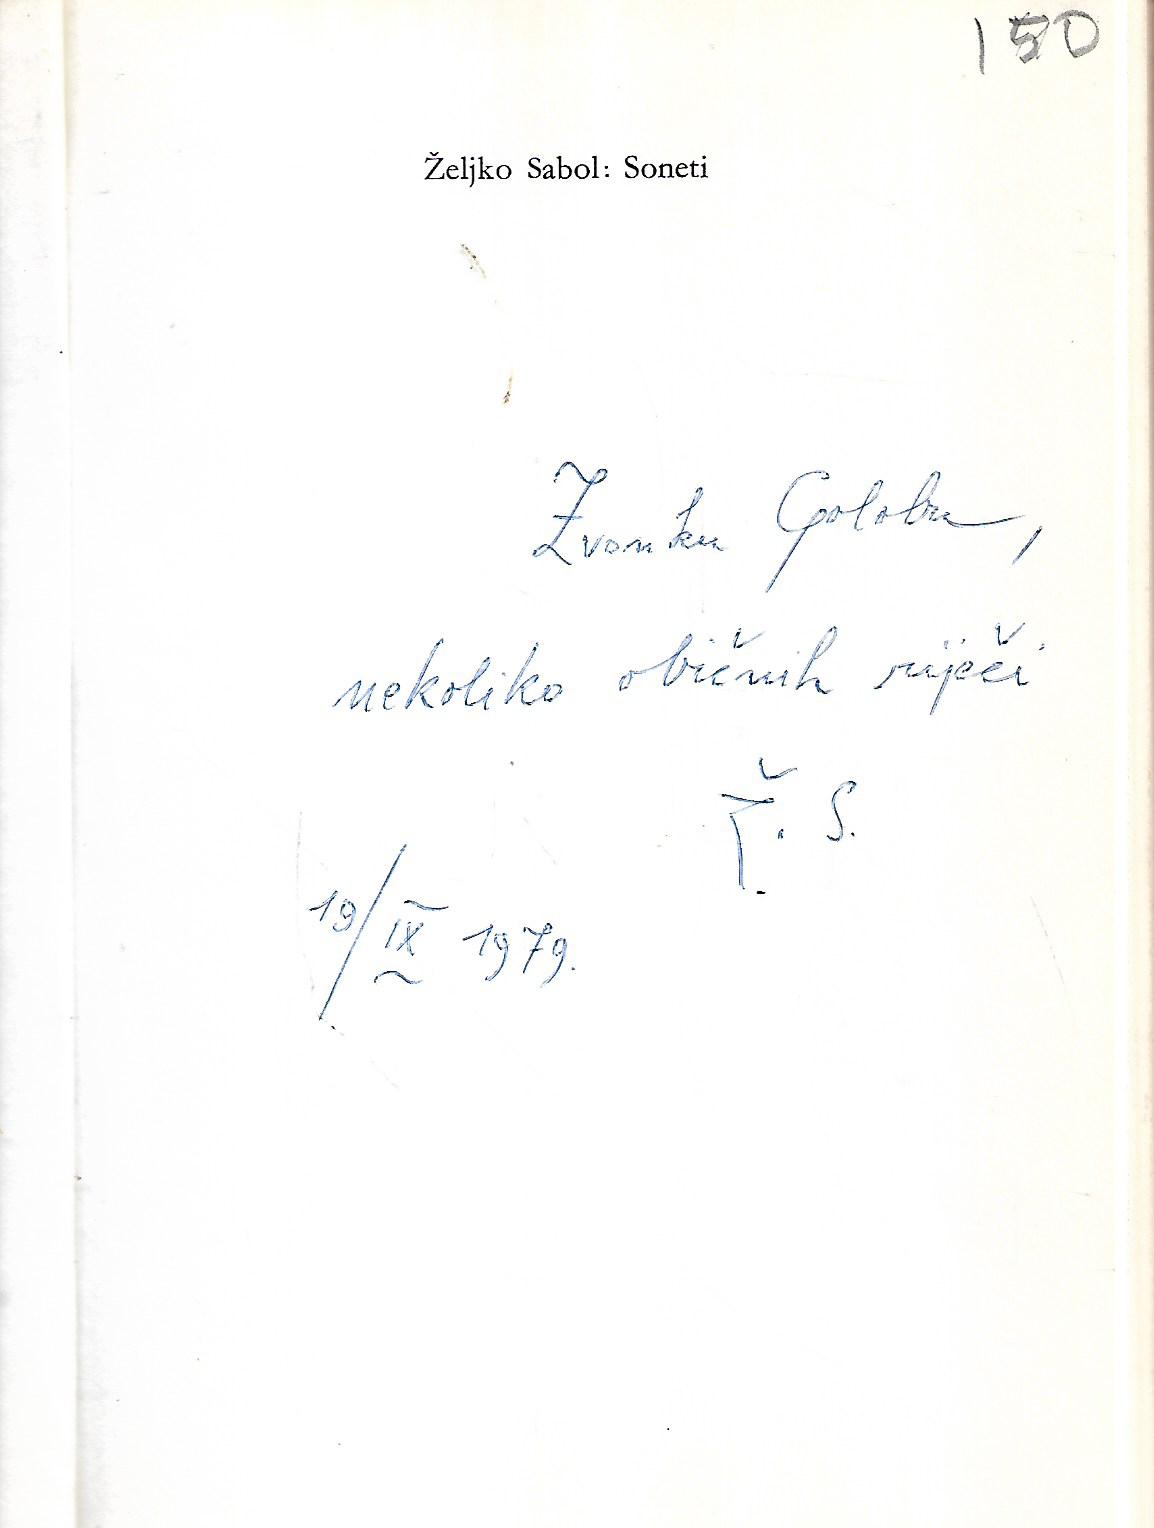 150
Željko Sabol: Soneti
Zvonku Golobu,
nekoliko običnih riječi
Ž. S.
19/IX 1979.